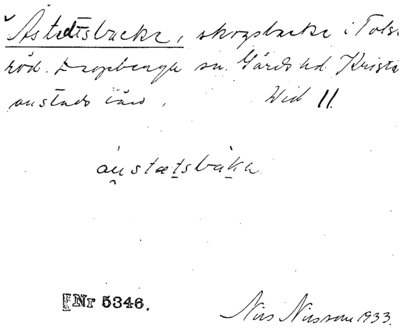 Åstadtsbacke, skogsbacke i Tols
röd. Degeberga sn. Gärds hd. Kristi
anstads län. Wid 11
áu̯stæt̠sbàk̠a
Nr 5346.
Nils Nilsson 1933.